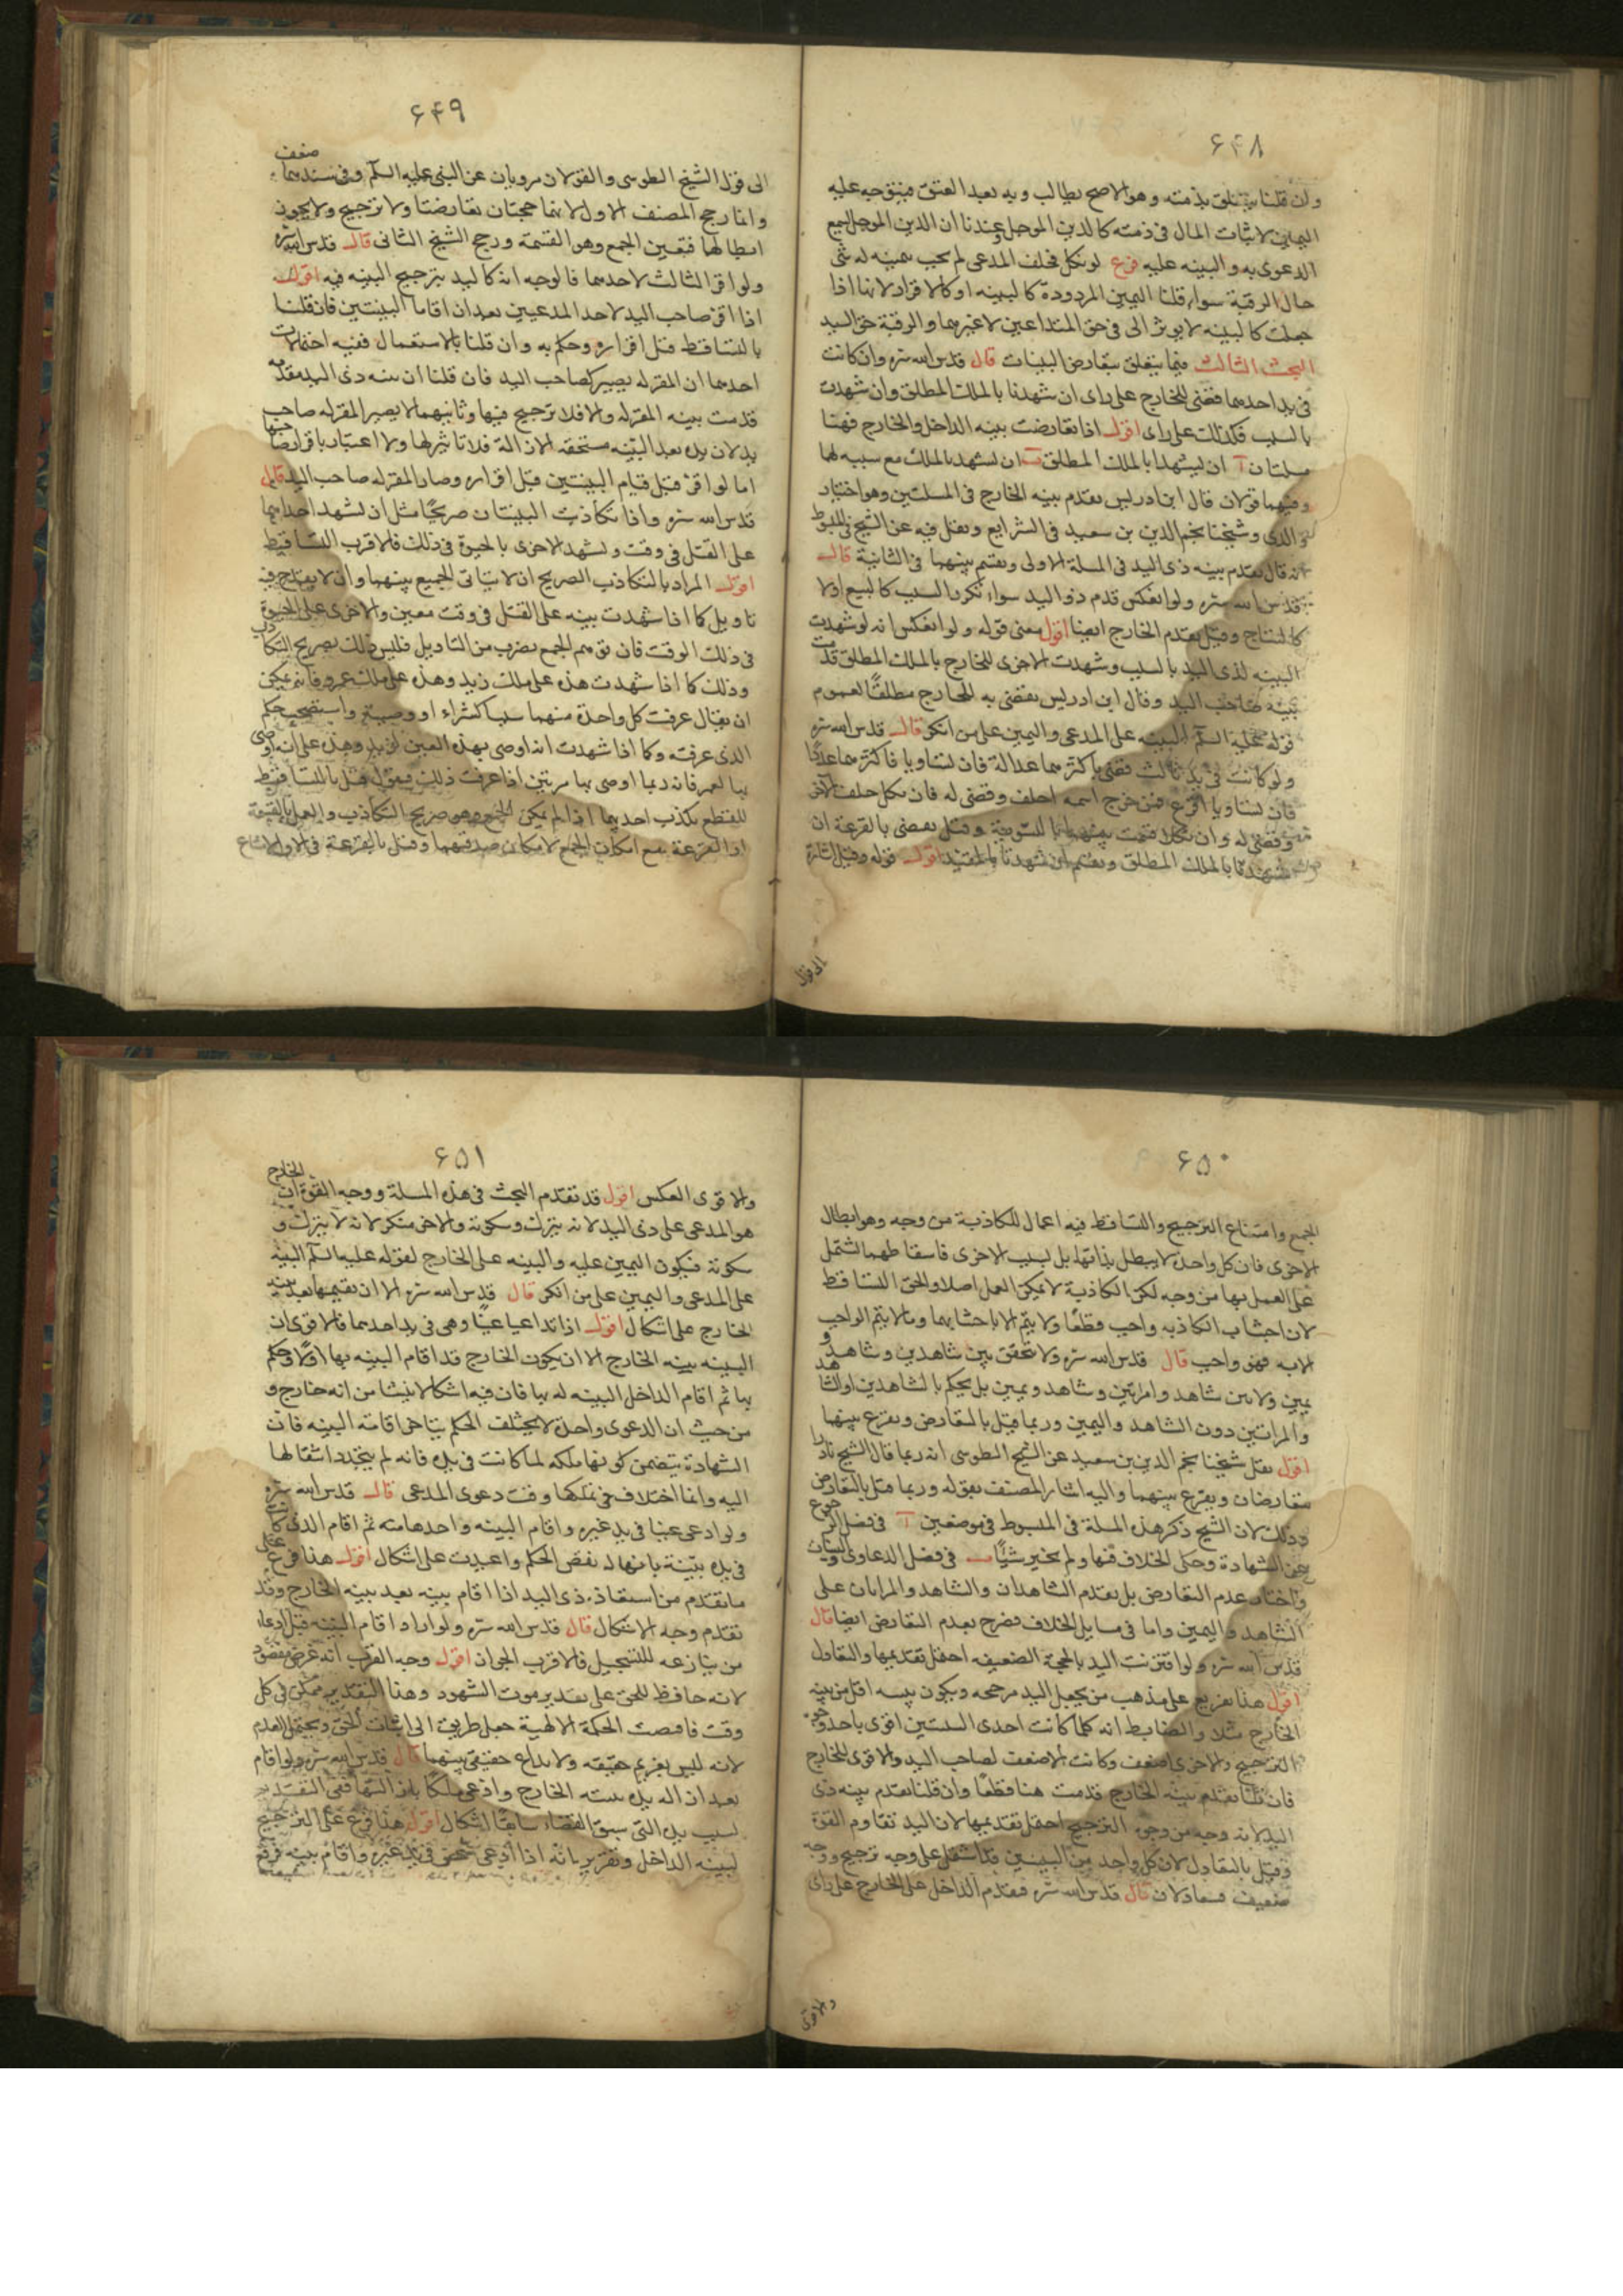 ۶۴۸
وان قلنا يتعلق بذمته وهو الاصح يطالب ويد بعد العتق فيتوجه عليه
اليمين لاثبات المال فى ذمته كالدين الموجل عندنا ان الدين الموجل يسمع
الدعوى به والبينه عليه فرع لو نكل فحلف المدعى لم يجب بيمينه له شى
حال الرقية سواء قلنا اليمين المردودة كالبينه او كالاقرار لانها اذا
جعلت كالبينه لا يوثر الى فى حق المتداعيين لا غيرهما والرقبة حق السيد
البحث الثالث فيما يتعلق بتعارض البينات قال قدس الله سره وان كانت
فى يد احدهما قضى للخارج على راى ان شهدتا بالملك المطلق وان شهدت
بالسبب فكذلك على راى اقول اذا تعارضت بينه الداخل والخارج فهنا
مسلتان آ ان يشهدا بالملك المطلق ب ان يشهد بالملك مع سببه لها
وفيهما قولان قال ابن ادريس يقدم بينه الخارج فى المسلتين وهو اختيار
والدى وشيخنا نجم الدين بن سعيد فى الشرايع ونقل فيه عن الشيخ فى المبسوط
انه قال يقدم بينه ذى اليد فى المسلة الاولى ويقسم بينهما فى الثانية قال
قدس الله سره ولو انعكس قدم ذو اليد سواء تكرر السبب كالبيع اولا
كالنتاج وقيل يقدم الخارج ايضا اقول معنى قوله ولو انعكس انه لو شهدت
البينه لذى اليد بالسبب وشهدت الاخرى للخارج بالملك المطلق قدمت
بينه صاحب اليد وقال ابن ادريس يقضى به للخارج مطلقًا لعموم
قوله عليه السلم البينه على المدعى واليمين على من انكر قال قدس الله سره
ولو كانت فى يد ثالث قضى باكثرهما عدالة فان تساويا فاكثرهما عددًا
فان تساويا اقرع فمن خرج اسمه احلف وقضى له فان نكل حلف الاخر
وقضى له وان نكلا قسمت بينهما بالسوية وقيل يقضى بالقرعة ان
شهدتا بالملك المطلق ويقسم ان شهدتا بالمقيد اقول قوله وقيل اشارة
الى قول
۶۴۹
الى قول الشيخ الطوسى والقولان مرويان عن النبى عليه السلم وفى سندهما ضعف
وانما رجح المصنف الاول لانها حجتان تعارضتا ولا ترجيح ولا يجوز
ابطالها فتعين الجمع وهو القسمة ورجح الشيخ الثانى قال قدس الله سره
ولو اقر الثالث لاحدهما فالوجه انه كاليد يترجح البينه فيه اقول
اذا اقر صاحب اليد لاحد المدعيين بعد ان اقاما البينتين فان قلنا
بالتساقط قبل اقراره وحكم به وان قلنا بالاستعمال ففيه احتمالات
احدهما ان المقر له يصير كصاحب اليد فان قلنا ان بينه ذى اليد مقدمه
قدمت بينه المقر له والا فلا ترجيح فيها وثانيهما لا يصير المقر له صاحب
يد لان يده بعد البينه مستحقه الازالة فلا تاثير لها ولا اعتبار باقرار صاحبها
اما لو اقر قبل قيام البينتين قبل اقراره وصار المقر له صاحب اليد قال
قدس الله سره واذا تكاذبت البينتان صريحًا مثل ان تشهد احدهما
على القتل فى وقت وتشهد الاخرى بالحيوة فى ذلك فالاقرب التساقط
اقول المراد بالتكاذب الصريح ان لا يتاتى الجمع بينهما وان لا يقدح فيه
تاويل كما اذا شهدت بينه على القتل فى وقت معين والاخرى على الحيوة
فى ذلك الوقت فان توهم الجمع بضرب من التاويل فليس ذلك بصريح التكاذب
وذلك كما اذا شهدت هذه على ملك زيد وهذه على ملك عمرو فانه يمكن
ان يقال عرفت كل واحدة منهما سببا كشراء او وصية واستصحب حكم
الذى عرفته وكما اذا شهدت انه اوصى بهذه العين لزيد وهذه على انه اوصى
بها لعمرو فانه ربما اوصى بها مرتين اذا عرفت ذلك فنقول قيل بالتساقط
للقطع بكذب احديهما اذا لم يمكن الجمع وهو صريح التكاذب والعمل بالقسمة
او القرعة مع امكان الجمع لامكان صدقهما وقيل بالقرعة فى الاول لامتناع
۶۵۰
الجمع وامتناع الترجيح والتساقط فيه اعمال للكاذبة من وجه وهو ابطال
الاخرى فان كل واحدة لا يبطل بذاتها بل بسبب الاخرى فاسقاطهما اشتمل
على العمل بها من وجه لكن الكاذبة لا يمكن العمل اصلا والحق التساقط
لان اجتناب الكاذبه واجب قطعًا ولا يتم الا باجتنابهما وما لا يتم الواجب
الا به فهو واجب قال قدس الله سره ولا يتحقق بين شاهدين وشاهد و
يمين ولا بين شاهد وامراتين وشاهد ويمين بل يحكم بالشاهدين او الشاهد
والمراتين دون الشاهد واليمين وربما قيل بالتعارض ويقرع بينهما
اقول نقل شيخنا نجم الدين بن سعيد عن الشيخ الطوسى انه ربما قال الشيخ نادرا
يتعارضان ويقرع بينهما واليه اشار المصنف بقوله وربما قيل بالتعارض
وذلك لان الشيخ ذكر هذه المسلة فى المبسوط فى موضعين آ فى فصل الرجوع
عن الشهادة وحكى الخلاف فيها ولم يختر شيًا ب فى فصل الدعاوى والبينات
واختار عدم التعارض بل يقدم الشاهدان والشاهد والمراتان على
الشاهد واليمين واما فى مسايل الخلاف فصرح بعدم التعارض ايضا قال
قدس الله سره ولو اقترنت اليد بالحجة الضعيفه احتمل تقديمها والتعادل
اقول هذا تفريع على مذهب من يجعل اليد مرجحه ويكون بينه اقل من بينه
الخارج مثلا والضابط انه كلما كانت احدى البينتين اقوى باحد وجوه
الترجيح والاخرى اضعف وكانت الاضعف لصاحب اليد والاقوى للخارج
فان قلنا بتقدم بينه الخارج قدمت هنا قطعًا وان قلنا بتقدم بينه ذى
اليد لانه وجه من وجوه الترجيح احتمل تقديمها لان اليد تقاوم القوة
وقيل بالتعادل لان كل واحد من البينتين قد اشتمل على وجه ترجيح ووجه
ضعيف فتعادلان قال قدس الله سره فيقدم الداخل على الخارج على راى
والاقوى
۶۵۱
والاقوى العكس اقول قد تقدم البحث فى هذه المسلة ووجه القوة ان الخارج
هو المدعى على ذى اليد لانه يترك وسكوته والاخر منكر لانه لا يترك و
سكوته فيكون اليمين عليه والبينه على الخارج لقوله عليه السلم البينه
على المدعى واليمين على من انكر قال قدس الله سره الا ان يقيمها بعد بينه
الخارج على اشكال اقول اذا تداعيا عينًا وهى فى يد احدهما فالاقوى ان
البينه بينه الخارج الا ان يكون الخارج قد اقام البينه بها اولًا وحكم
بها ثم اقام الداخل البينه له بها فان فيه اشكالا ينشا من انه خارج و
من حيث ان الدعوى واحدة لا يختلف الحكم بتاخر اقامته البينه فان
الشهادة يتضمن كونها ملكه لما كانت فى يده فانه لم يتجدد انتقالها
اليه وانما اختلاف فى تملكها وقت دعوى المدعى قال قدس الله سره
ولو ادعى عينا فى يد غيره واقام البينه واخذها منه ثم اقام الذى كانت
فى يده بينة بانها له نقض الحكم واعيدت على اشكال اقول هذا فرع على
ما تقدم من استنقاذ ذى اليد اذا اقام بينه بعد بينه الخارج وقد
تقدم وجه الاشكال قال قدس الله سره ولو اراد اقام البينه قبل ادعاء
من ينازعه للتسجيل فالاقرب الجواز اقول وجه القرب انه غرض مقصود
لانه حافظ للحق على تقدير موت الشهود وهذا التقدير ممكن فى كل
وقت فاقتضت الحكمة الالهية جعل طريق الى اثبات الحق ويحتمل العدم
لانه ليس بغريم حقيقه ولا نزاع حقيقى بينهما قال قدس الله سره ولو اقام
بعد ازالة يده ببينه الخارج وادعى ملكًا
لسبب يده التى سبق القضاء اشكال اقول هذا فرع على الترجيح
لبينه الداخل وتقريره انه اذا ادعى شخص فى يد غيره واقام بينه